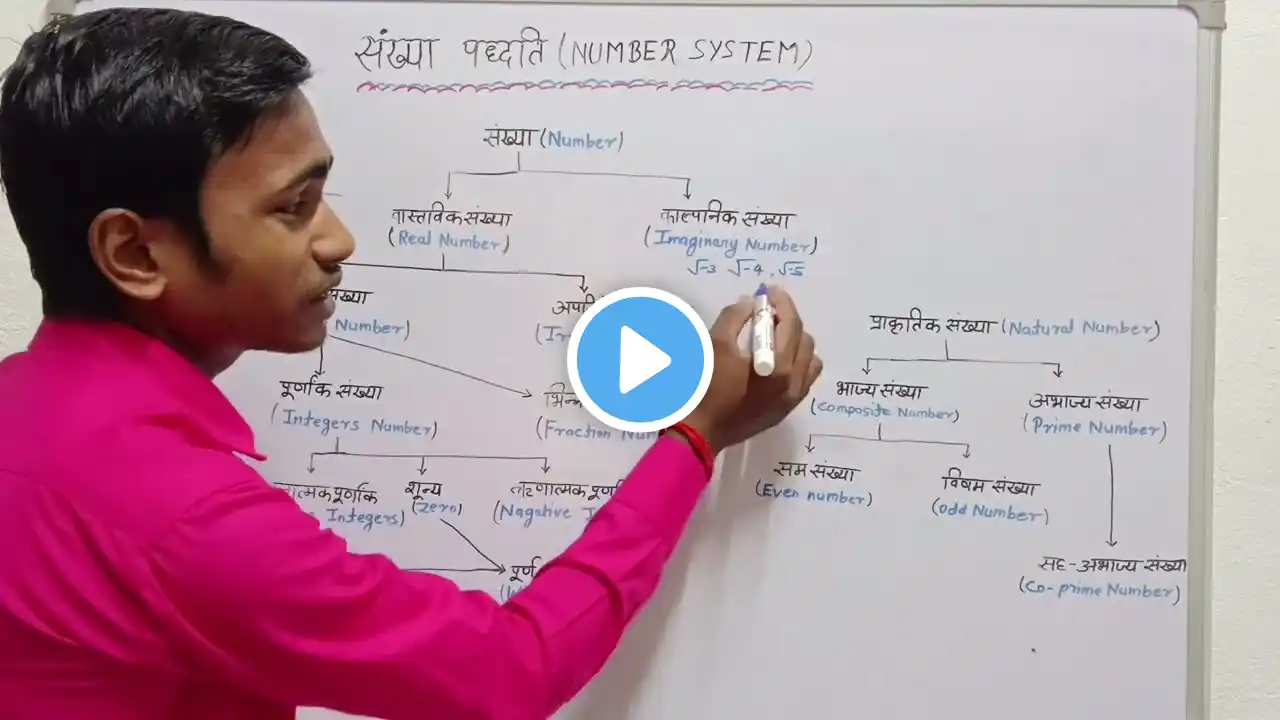 संख्या पद्धति (NUMBER SYSTEM)
संख्या (Number)
वास्तविक संख्या
(Real Number)
काल्पनिक संख्या
(Imaginary Number)
√-3 √-4, √-5
संख्या
Number)
पूर्णांक संख्या
(Integers Number)
(Fraction
पूर्णांक
Integers)
शून्य
(Zero)
(Nagative
प्राकृतिक संख्या (Natural Number)
भाज्य संख्या
(Composite Number)
अभाज्य संख्या
(Prime Number)
सम संख्या
(Even number)
विषम संख्या
(odd Number)
सह-अभाज्य संख्या
(Co-prime Number)